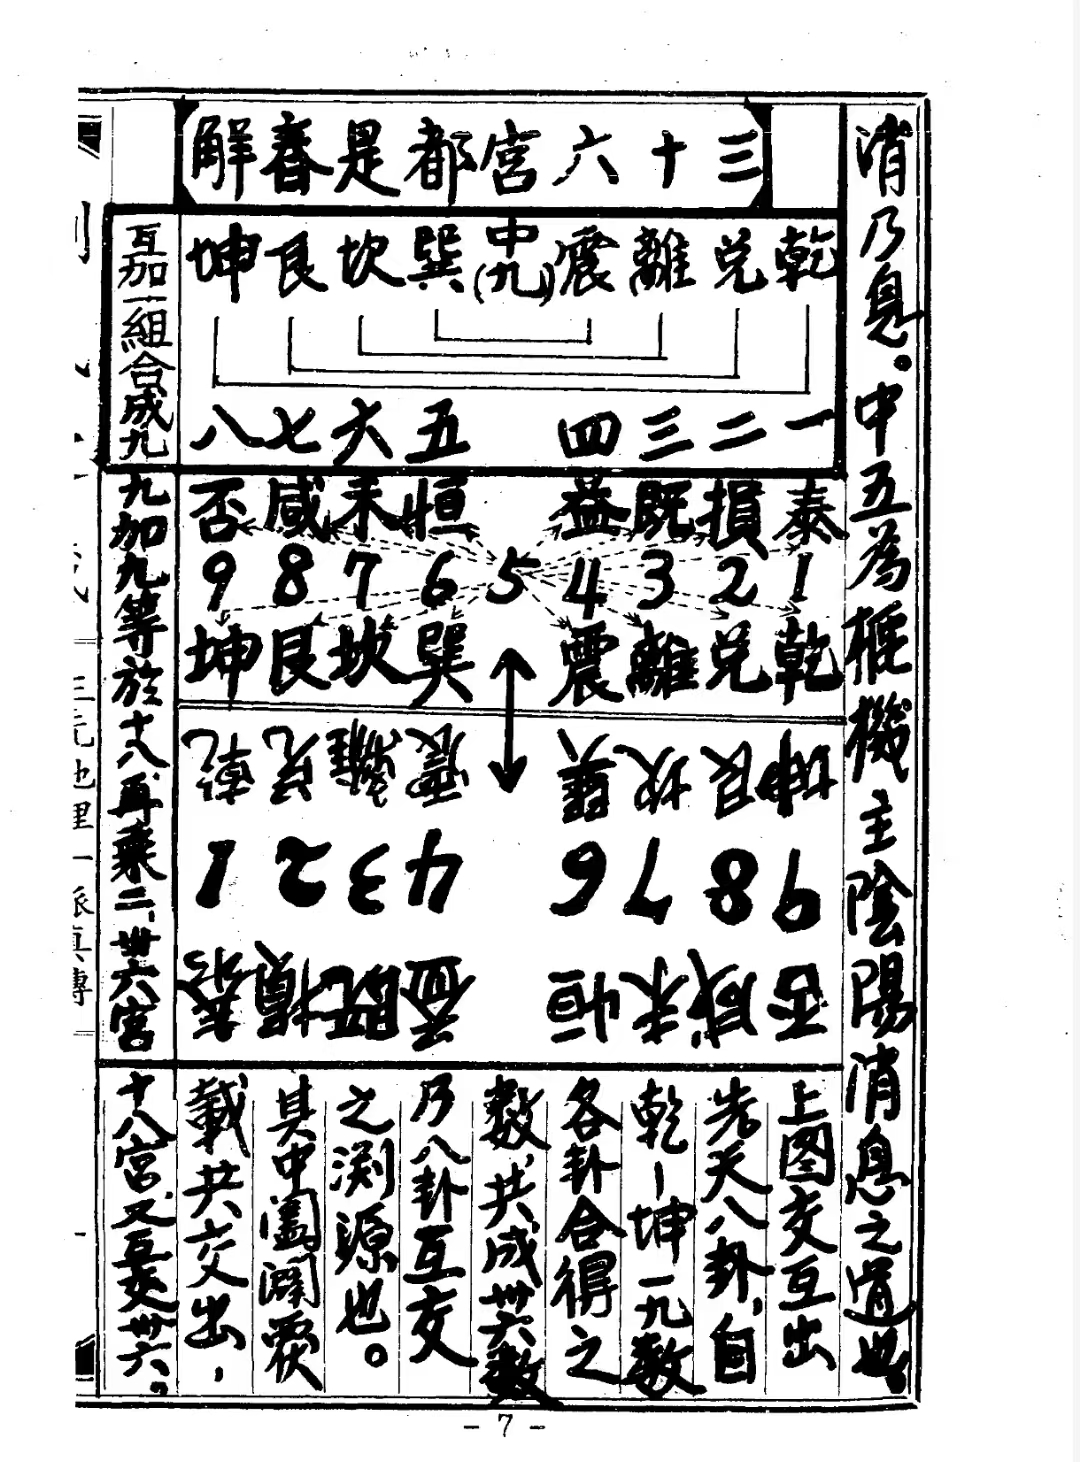 消乃息。中五為樞機主陰陽消息之道也。
三十六宮都是春解
乾兌離震中(九)巽坎艮坤
一二三四五六七八
互加一組合成九
泰損既益恒未咸否
1 2 3 4 5 6 7 8 9
乾兌離震巽坎艮坤
坤艮坎巽震離兌乾
9 8 7 6 4 3 2 1
否咸未恒益既損泰
九加九等於十八再乘二、卅六宮
上图交互出
先天八卦,自
乾一坤一九數
各卦合得之
數,共成卅六數
乃八卦互交
之渕源也。
其中闔闢覆
載共交出,
十八宮、又互交卅六。
三元地理一派真傳
- 7 -